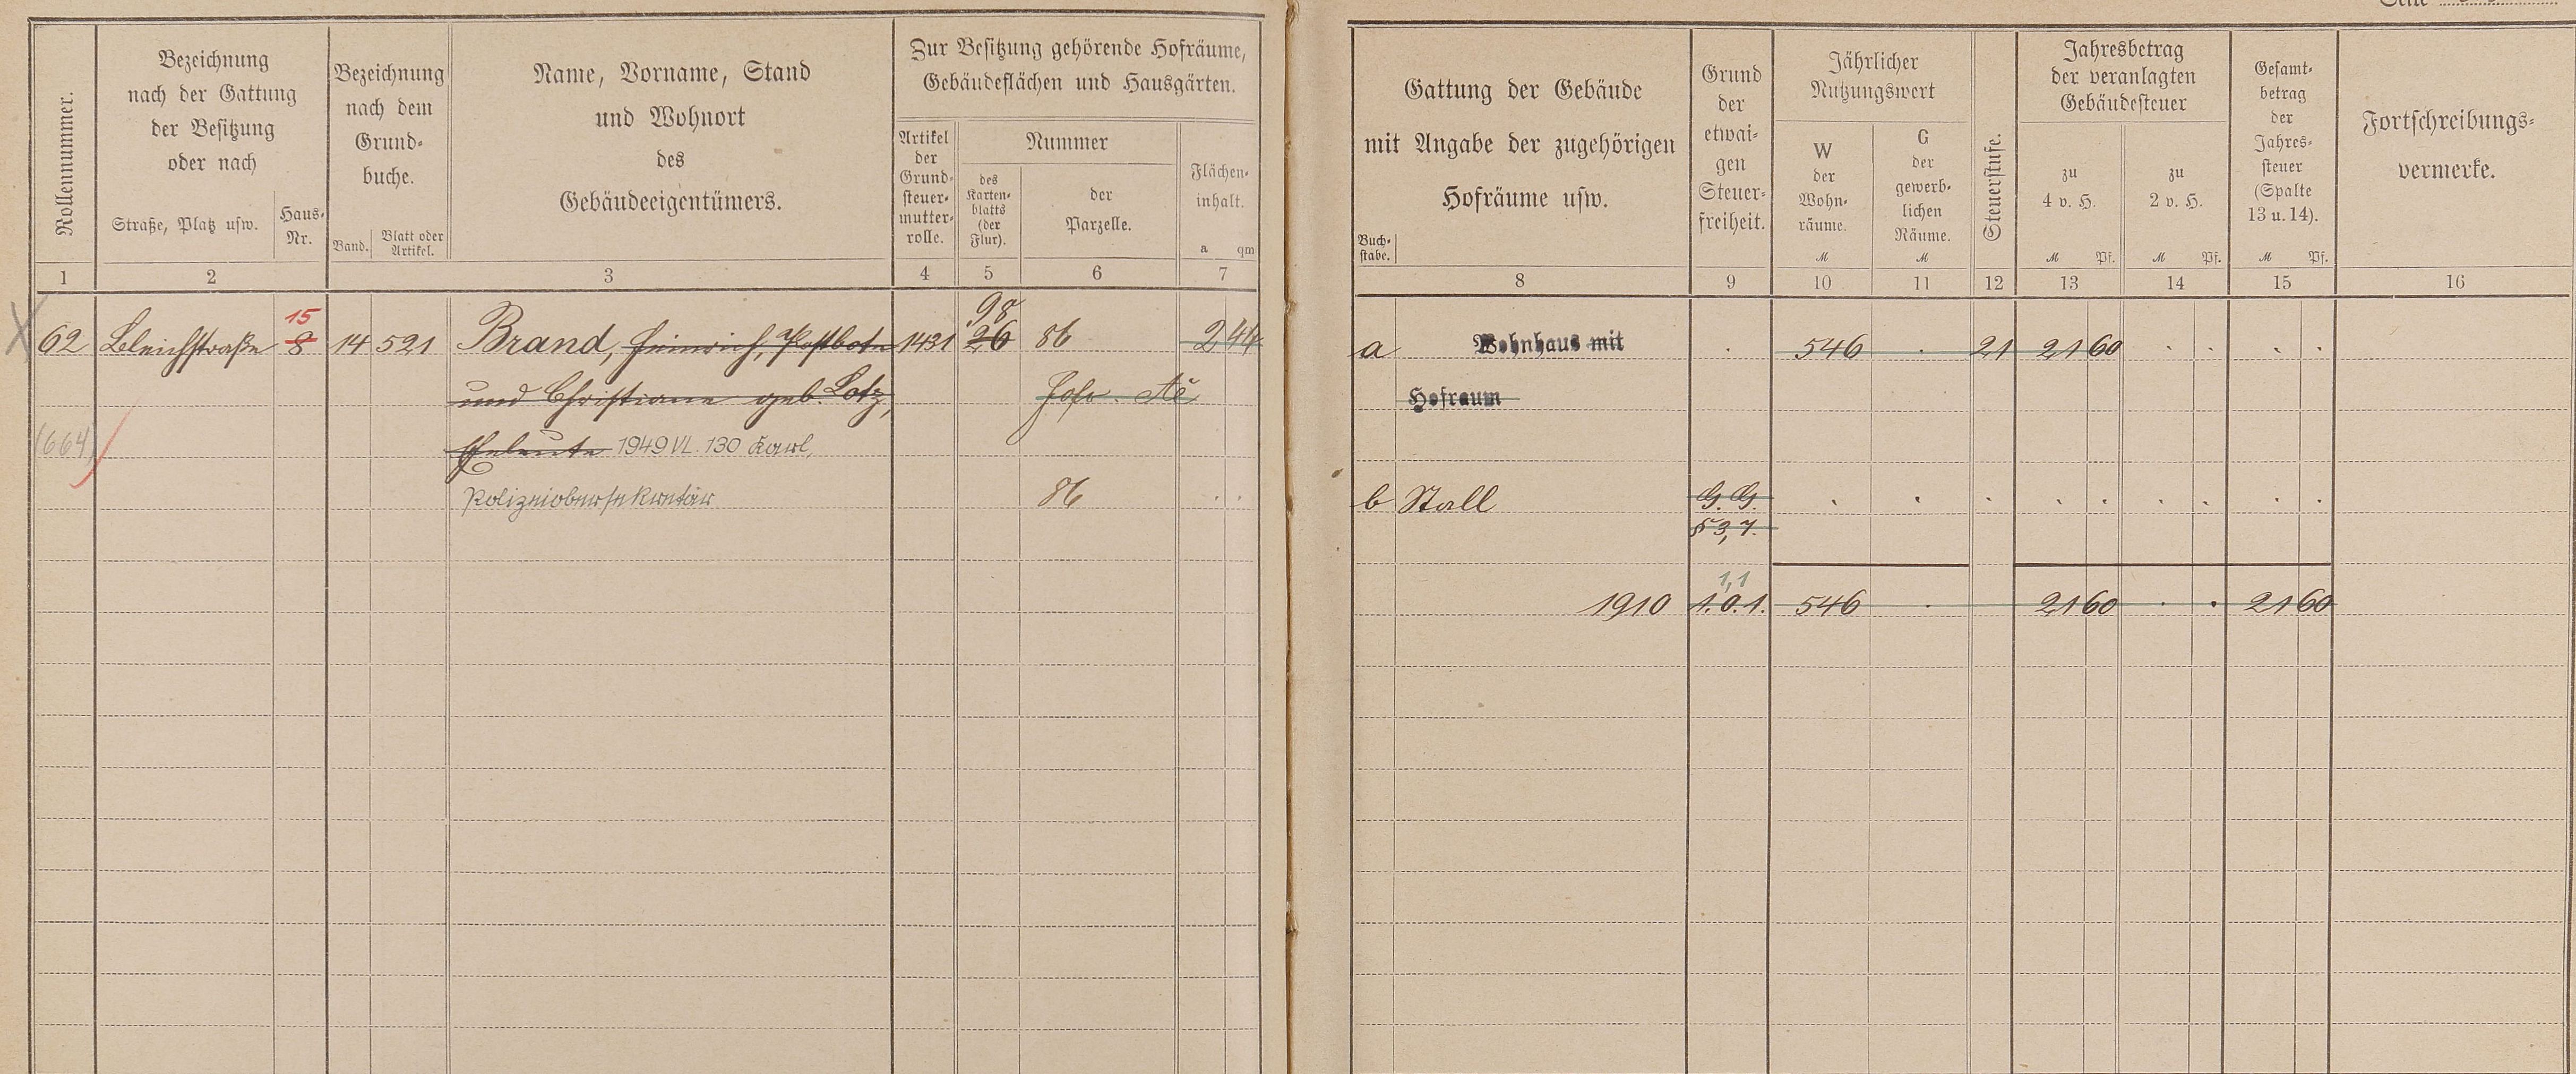 Seite
Rollennummer.
Bezeichnung
nach der Gattung
der Besitzung
oder nach
Straße, Platz usw.
Haus-
Nr.
Bezeichnung
nach dem
Grund-
buche.
Band.
Blatt oder
Artikel.
Name, Vorname, Stand
und Wohnort
des
Gebäudeeigentümers.
Zur Besitzung gehörende Hofräume,
Gebäudeflächen und Hausgärten.
Artikel
der
Grund-
steuer-
mutter-
rolle.
Nummer
des
Karten-
blatts
(der
Flur).
der
Parzelle.
Flächen-
inhalt.
a qm
Gattung der Gebäude
mit Angabe der zugehörigen
Hofräume usw.
Buch-
stabe.
Grund
der
etwai-
gen
Steuer-
freiheit.
Jährlicher
Nutzungswert
W
der
Wohn-
räume.
M
G
der
gewerb-
lichen
Räume.
M
Steuerstufe.
Jahresbetrag
der veranlagten
Gebäudesteuer
zu
4 v. H.
M Pf.
zu
2 v. H.
M Pf.
Gesamt-
betrag
der
Jahres-
steuer
(Spalte
13 u. 14).
M Pf.
Fortschreibungs-
vermerke.
1 2 3 4 5 6 7 8 9 10 11 12 13 14 15 16
15 98
62 Bleichstraße 8 14 521 Brand, Heinrich, Postbote 1431 26 86 2 44 a Wohnhaus mit . 546 . 21 21 60 . . . .
und Christiane geb. Lotz, Hofr. Hofraum
(664) Eheleute 1949 VI. 130 Karl,
Polizeiobersekretär 86 . . b Stall G. G. . . . . . . . . .
§ 3,7.
1,1
1910 1.0.1. 546 . 21 60 . . 21 60